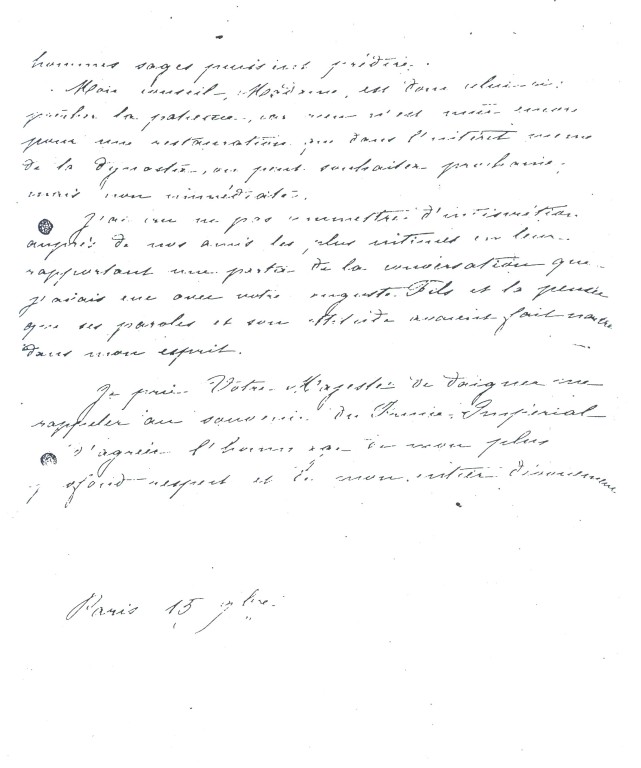 hommes sages puissent prédire.
Mon conseil, Madame, est donc celui-ci:
prêcher la patience, car rien n'est mûr encore
pour une restauration que dans l'intérêt même
de la dynastie, on peut souhaiter prochaine,
mais non immédiate.
J'ai cru ne pas commettre d'indiscrétion
auprès de nos amis les plus intimes en leur
rapportant une partie de la conversation que
j'avais eue avec votre auguste Fils et la pensée
que ses paroles et son attitude avaient fait naître
dans mon esprit.
Je prie Votre Majesté de daigner me
rappeler au souvenir du Prince Impérial
d'agréer l'hommage de mon plus
profond respect et de mon entier dévouement
Paris 15 9bre